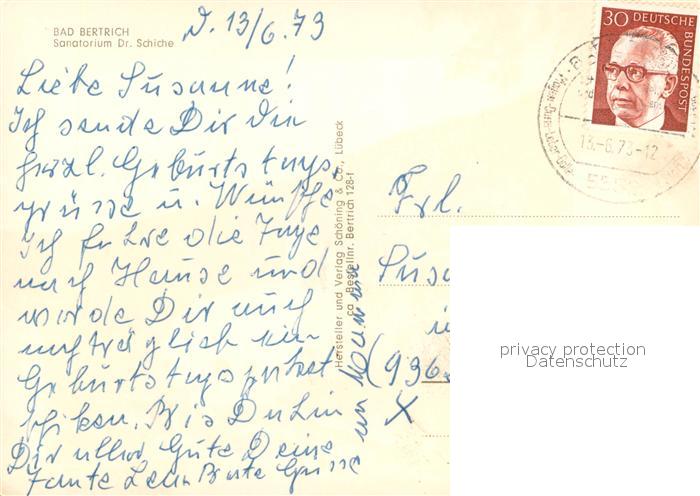 BAD BERTRICH
Sanatorium Dr. Schiche
D. 13/6.73
Liebe Susanne!
Ich sende Dir die
herzl. Geburtstags,
grüsse u. Wünsche,
Ich fahre die Tage
nach Hause und
werde Dir auch
nachträglich ein
Geburtstagspaket
schiken. Bis Dahin
Dir alles Gute Deine
Tante Beste Grüsse
an
Hersteller und Verlag Schöning & Co., Lübeck
Bestellnr. Bertrich 128-f
30 DEUTSCHE BUNDESPOST
13.-6.73-12
Frl.
Susa
(936
X
privacy protection
Datenschutz